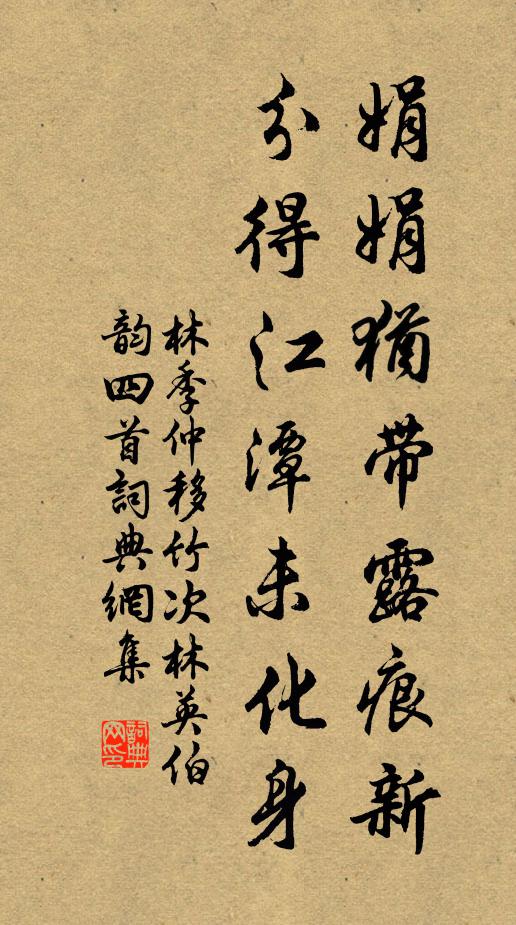 娟娟猶帶露痕新
分得江潭未化身
林季仲移竹次林英伯
韵四首詞典網集
詞典網印